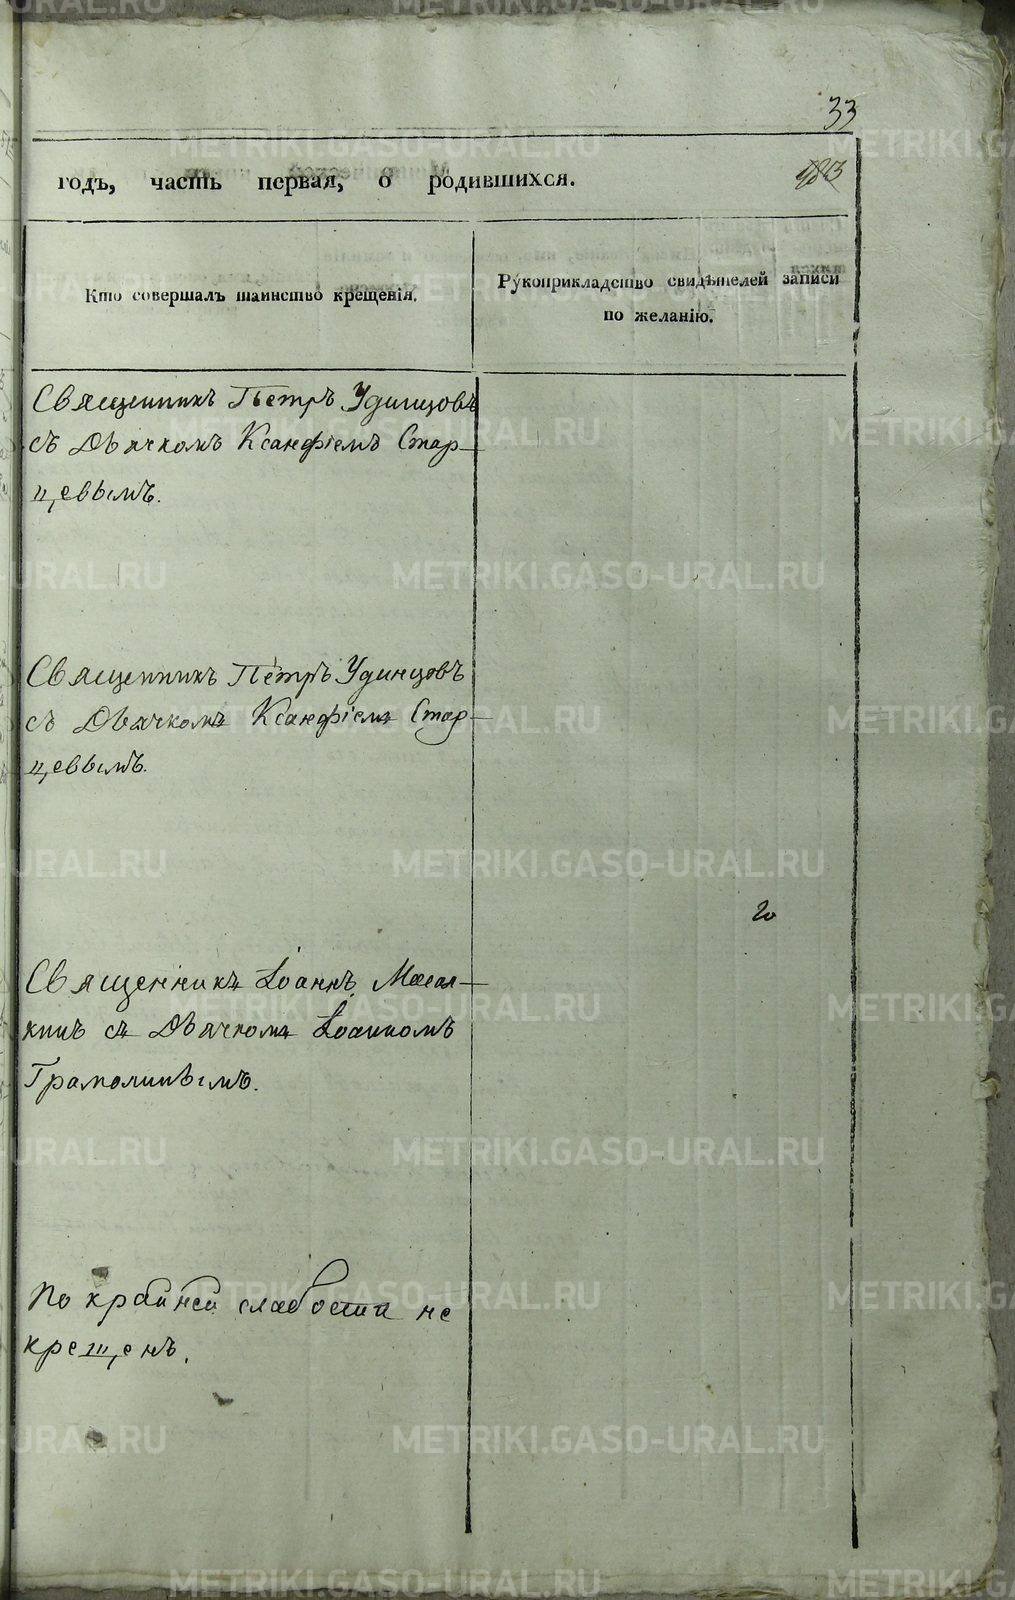 33
годъ, часть первая, о родившихся.
Кто совершалъ таинство крещенія.
Рукоприкладство свидѣтелей записи
по желанію.
Священникъ Петръ Удинцовъ
съ Дьячкомъ Ксанфіемъ Стар-
цевымъ.
Священникъ Петръ Удинцовъ
съ Дьячкомъ Ксанфіемъ Стар-
цевымъ.
Священникъ Іоаннъ
съ Дьячкомъ Іоанномъ
По крайней слабости не
крещенъ.
METRIKI.GASO-URAL.RU